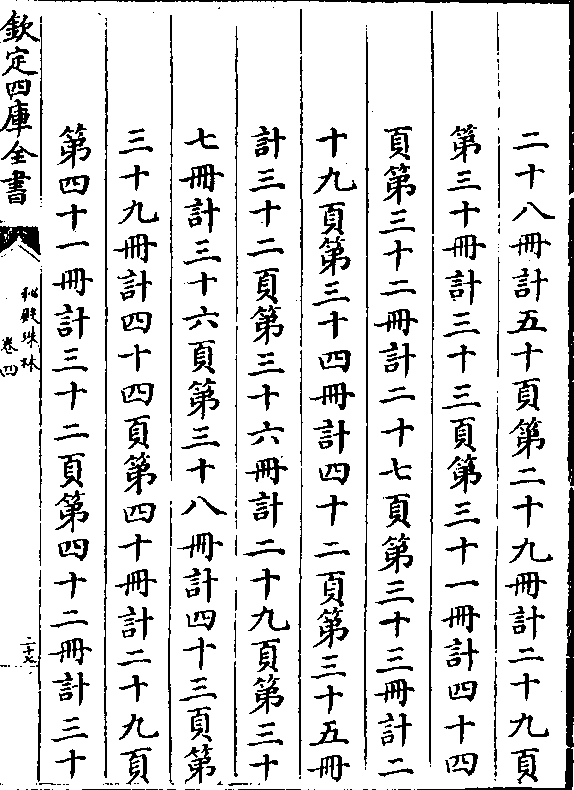 二十八冊計五十頁第二十九冊計二十九頁
第三十冊計三十三頁第三十一冊計四十四
頁第三十二冊計二十七頁第三十三冊計二
十九頁第三十四冊計四十二頁第三十五冊
計三十二頁第三十六冊計二十九頁第三十
七冊計三十六頁第三十八冊計四十三頁第
三十九冊計四十四頁第四十冊計二十九頁
第四十一冊計三十二頁第四十二冊計三十
欽定四庫全書
秘殿珠林
卷四
二十七